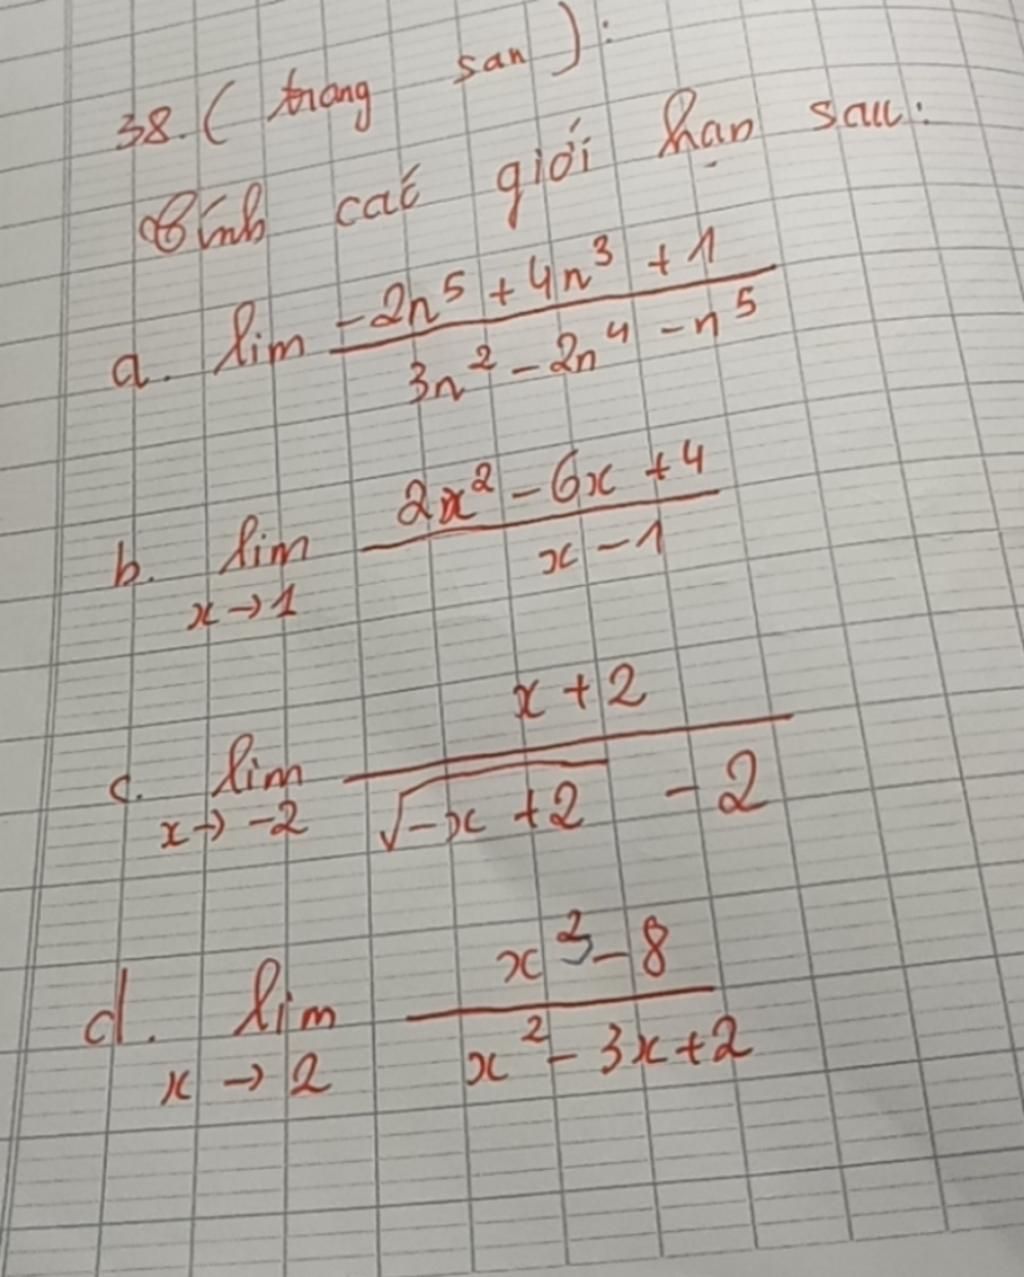 38. (trang san):
Tính các giới hạn sau:
a. lim (-2n⁵ + 4n³ + 1)/(3n² - 2n⁴ - n⁵)
b. lim x→1 (2x² - 6x + 4)/(x - 1)
c. lim x→-2 (x + 2)/(√(-x + 2) - 2)
d. lim x→2 (x³ - 8)/(x² - 3x + 2)